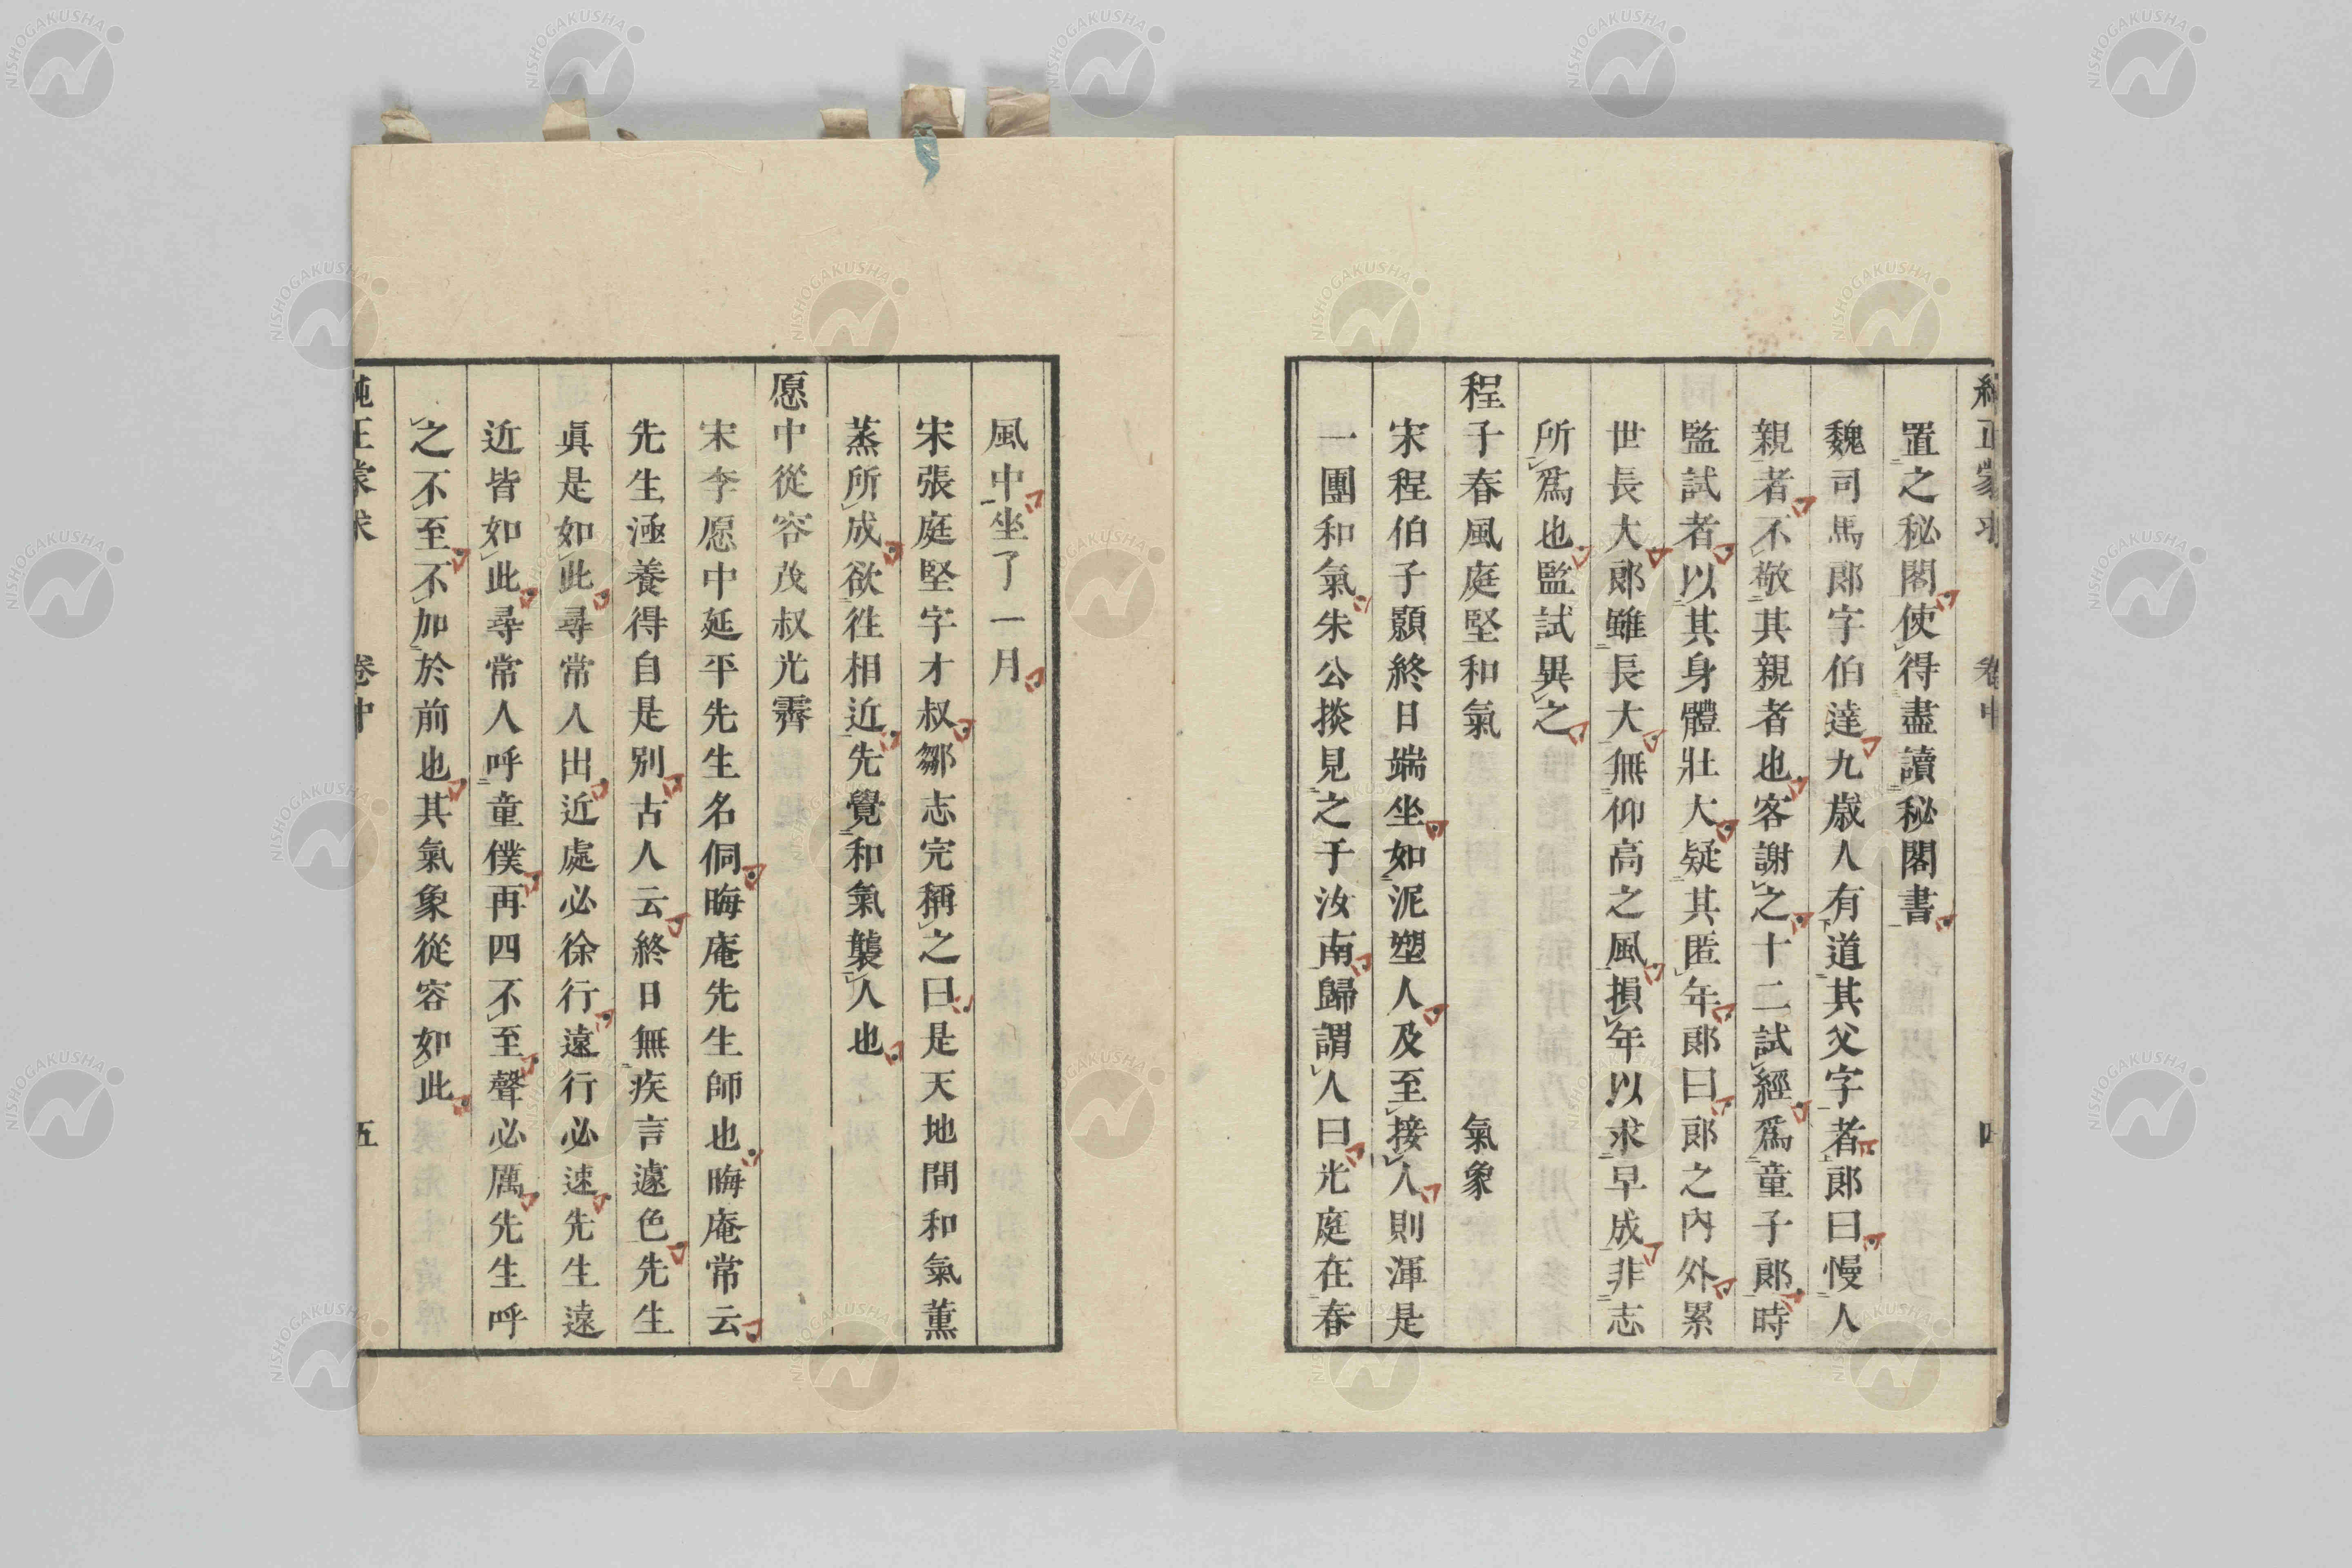 純正蒙求　卷中　四
置之秘閣使得盡讀秘閣書
魏司馬郎字伯達九歲人有道其父字者郎曰慢人
親者不敬其親者也客謝之十二試經爲童子郎時
監試者以其身體壯大疑其匿年郎曰郎之內外累
世長大郎雖長大無仰高之風損年以求早成非志
所爲也監試異之
程子春風庭堅和氣　氣象
宋程伯子顥終日端坐如泥塑人及至接人則渾是
一團和氣朱公掞見之于汝南歸謂人曰光庭在春
風中坐了一月
宋張庭堅字才叔鄒志完稱之曰是天地間和氣薰
蒸所成欲徃相近先覺和氣襲人也
愿中從容茂叔光霽
宋李愿中延平先生名侗晦庵先生師也晦庵常云
先生涵養得自是別古人云終日無疾言遽色先生
眞是如此尋常人出近處必徐行遠行必速先生遠
近皆如此尋常人呼童僕再四不至聲必厲先生呼
之不至不加於前也其氣象從容如此
純正蒙求　卷中　五
NISHOGAKUSHA